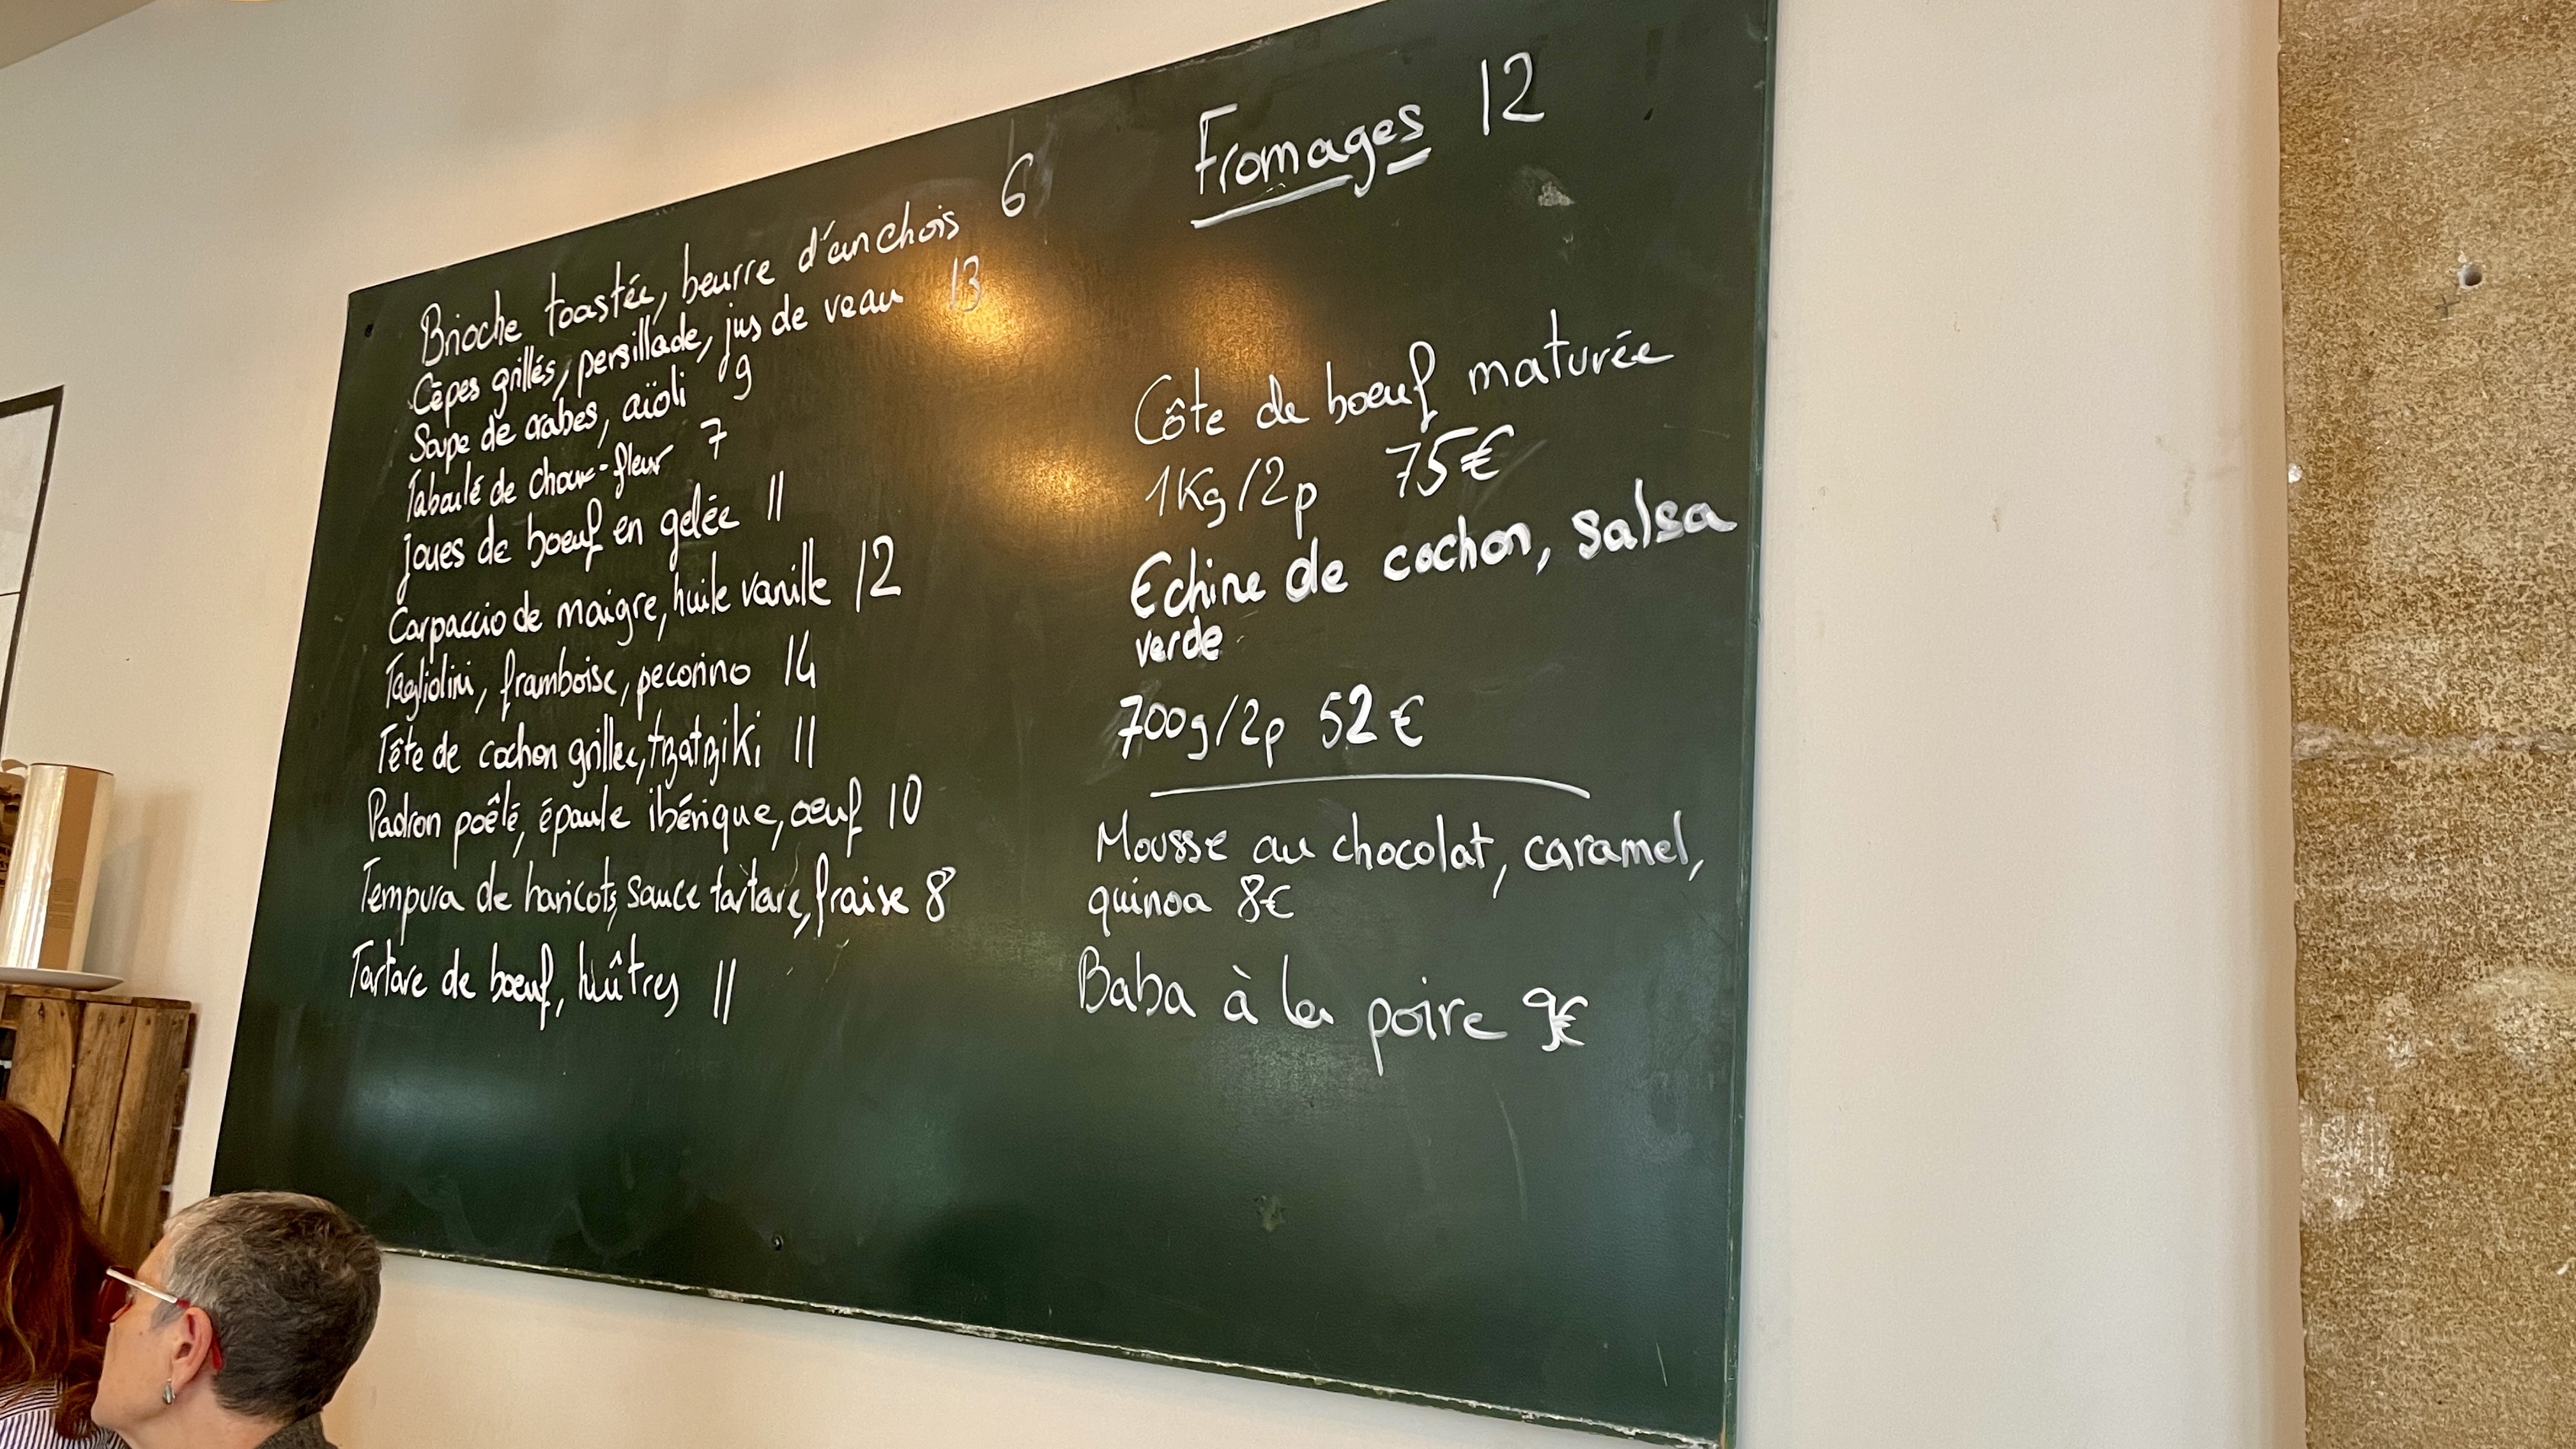 Brioche toastée, beurre d'anchois 6
Cèpes grillés, persillade, jus de veau 13
Soupe de crabes, aïoli 9
Taboulé de choux-fleur 7
Joues de boeuf en gelée 11
Carpaccio de maigre, huile vanille 12
Tagliolini, framboise, pecorino 14
Tête de cochon grillée, tzatziki 11
Padron poêlé, épaule ibérique, oeuf 10
Tempura de haricots, sauce tartare, fraise 8
Tartare de boeuf, huîtres 11
Fromages 12
Côte de boeuf maturée
1Kg/2p 75€
Echine de cochon, salsa
verde
700g/2p 52€
Mousse au chocolat, caramel,
quinoa 8€
Baba à la poire 9€